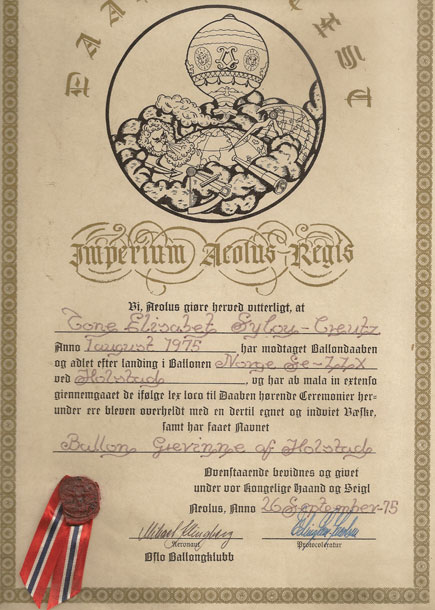 Imperium Aeolus Regis
Vi, Aeolus giøre herved vitterligt, at
Tone Elisabet Sylou-Creutz
Anno 1 august 1975 har modtaget Ballondaaben
og adlet efter landing i Ballonen Norge Se-ZZX
ved Holstad, og har ab mala in extenso
giennemgaaet de ifølge lex loco til Daaben hørende Ceremonier her-
under ere bleven overheldt med en dertil egnet og indviet Væske,
samt har faaet Navnet
Ballon Grevinne af Holstad
Ovenstaaende bevidnes og givet
under vor Kongelige Haand og Seigl
Aeolus, Anno 26 September-75
Aeronaut
Protocoleratur
Oslo Ballongklubb